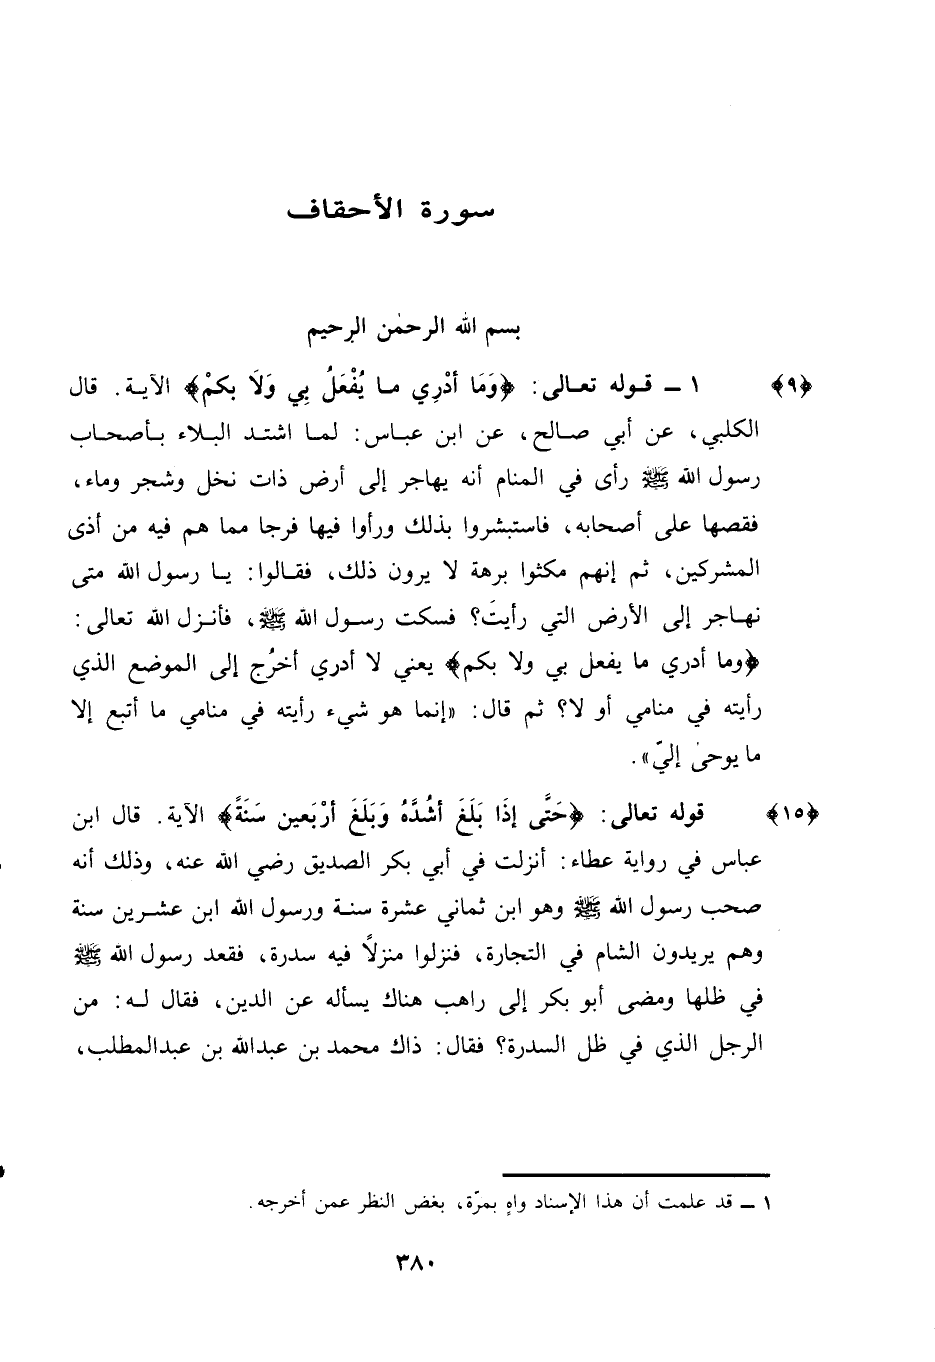 سورة الأحقاف
بسم الله الرحمٰن الرحيم
﴿٩﴾ ١ ــ قوله تعالى: ﴿وَمَا أدْرِي ما يُفْعَلُ بِي وَلَا بكمْ﴾ الآية. قال
الكلبي، عن أبي صالح، عن ابن عباس: لما اشتد البلاء بأصحاب
رسول الله ﷺ رأى في المنام أنه يهاجر إلى أرض ذات نخل وشجر وماء،
فقصها على أصحابه، فاستبشروا بذلك ورأوا فيها فرجا مما هم فيه من أذى
المشركين، ثم إنهم مكثوا برهة لا يرون ذلك، فقالوا: يا رسول الله متى
نهاجر إلى الأرض التي رأيتَ؟ فسكت رسول الله ﷺ، فأنزل الله تعالى:
﴿وما أدري ما يفعل بي ولا بكم﴾ يعني لا أدري أخرُج إلى الموضع الذي
رأيته في منامي أو لا؟ ثم قال: «إنما هو شيء رأيته في منامي ما أتبع إلا
ما يوحىٰ إليّ».
﴿١٥﴾ قوله تعالى: ﴿حَتَّى إذَا بَلَغَ أشُدَّهُ وَبَلَغَ أرْبَعين سَنَةً﴾ الآية. قال ابن
عباس في رواية عطاء: أنزلت في أبي بكر الصديق رضي الله عنه، وذلك أنه
صحب رسول الله ﷺ وهو ابن ثماني عشرة سنة ورسول الله ابن عشرين سنة
وهم يريدون الشام في التجارة، فنزلوا منزلًا فيه سدرة، فقعد رسول الله ﷺ
في ظلها ومضى أبو بكر إلى راهب هناك يسأله عن الدين، فقال له: من
الرجل الذي في ظل السدرة؟ فقال: ذاك محمد بن عبدالله بن عبدالمطلب،
١ ــ قد علمت أن هذا الإسناد واهٍ بمرّة، بغض النظر عمن أخرجه.
٣٨٠